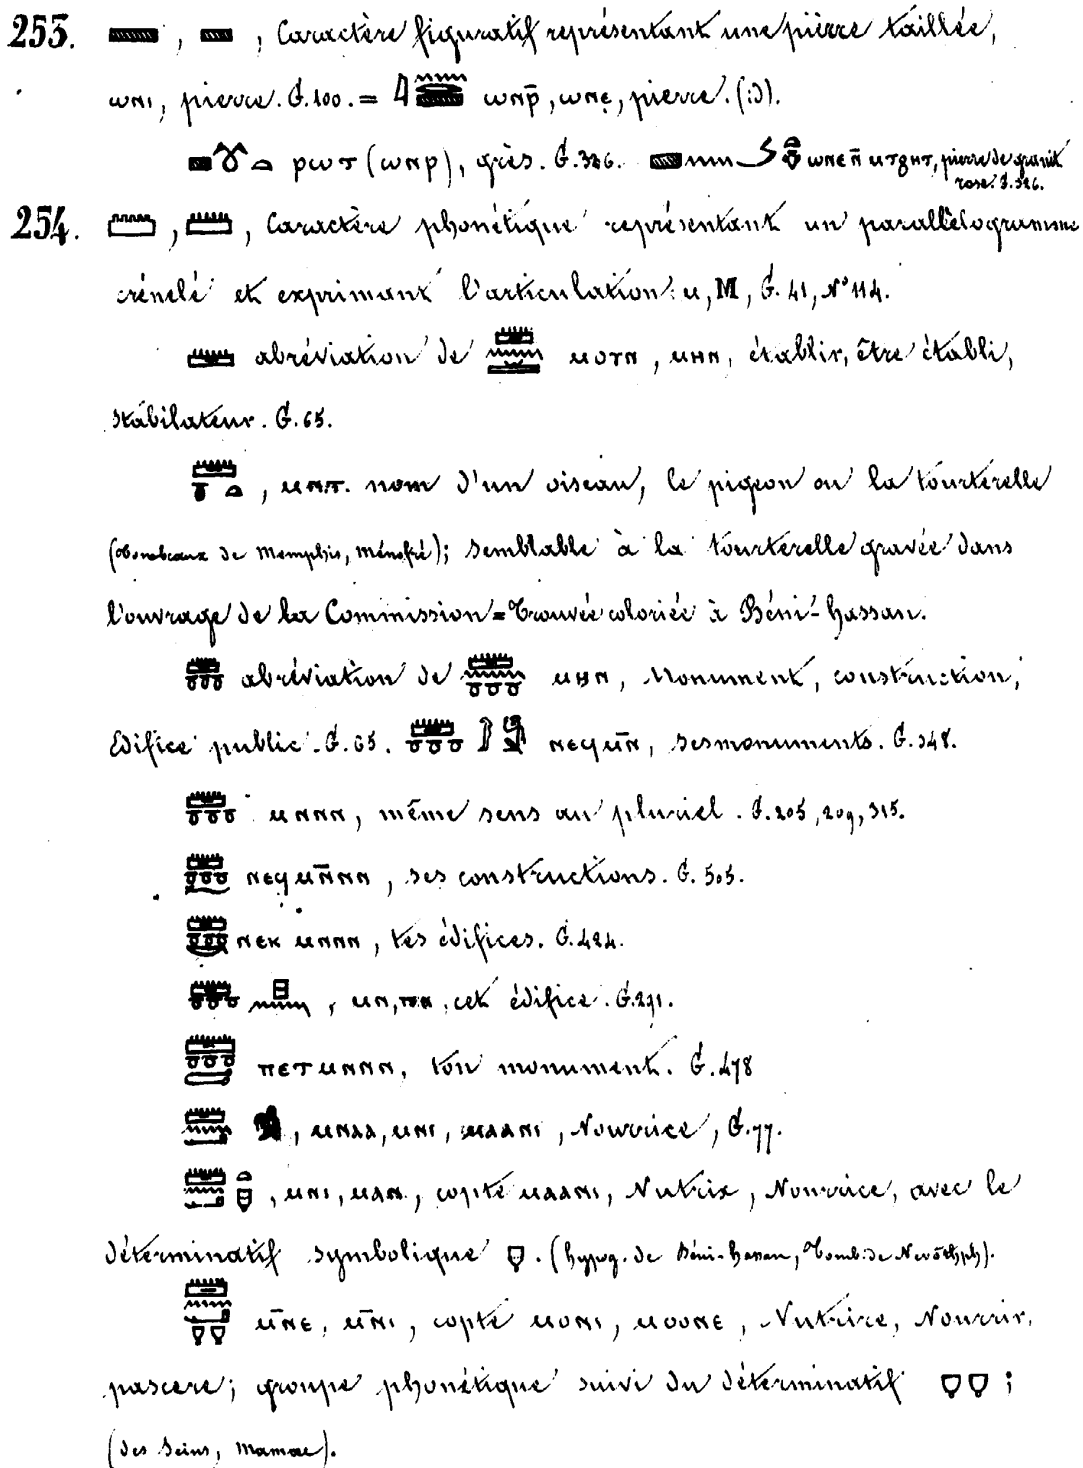 253. , , Caractère figuratif représentant une pierre taillée,
ⲱⲛⲓ, pierre. G. 100. = ⲱⲛⲣ̄, ⲱⲛⲉ, pierre. (id).
ⲣⲱⲧ (ⲱⲛⲣ), grès. G. 326. ⲱⲛⲉ ⲛ̄ ⲙⲧϩⲏⲧ, pierre de granit
rose. G. 326.
254. , , Caractère phonétique représentant un parallèlogramme
crénelé et exprimant l'articulation: ⲙ, M, G. 41, N° 114.
abréviation de ⲙⲟⲩⲛ, ⲙⲏⲛ, établir, être établi,
stabilateur. G. 65.
, ⲙⲛⲧ. nom d'un oiseau, le pigeon ou la tourterelle
(Tombeaux de Memphis, Ménofré); semblable à la tourterelle gravée dans
l'ouvrage de la Commission = Trouvée coloriée à Béni-hassan.
abréviation de ⲙⲏⲛ, Monument, construction,
Edifice public. G. 65. ⲛⲉϥⲙ̄ⲛ, ses monuments. G. 348.
ⲙⲛⲛⲛ, même sens au pluriel. G. 205, 209, 315.
ⲛⲉϥⲙⲛ̄ⲛⲛ, ses constructions. G. 505.
ⲛⲉⲕ ⲙⲛⲛⲛ, tes édifices. G. 424.
, ⲙⲛ, ⲡⲛ, cet édifice. G. 291.
ⲡⲉⲧⲙⲛⲛⲛ, ton monument. G. 478
, ⲙⲛⲁⲁ, ⲙⲛⲓ, ⲙⲁⲁⲛⲓ, Nourrice, G. 77.
, ⲙⲛⲓ, ⲙⲁⲛ, copte ⲙⲁⲁⲛⲓ, Nutrix, Nourrice, avec le
déterminatif symbolique . (hypog. de Béni-hassan, Tomb. de Nevôthph).
ⲙ̄ⲛⲉ, ⲙ̄ⲛⲓ, copte ⲙⲟⲛⲓ, ⲙⲟⲟⲛⲉ, Nutrire, Nourrir,
pascere; groupe phonétique suivi du déterminatif ;
(des Seins, Mamae).